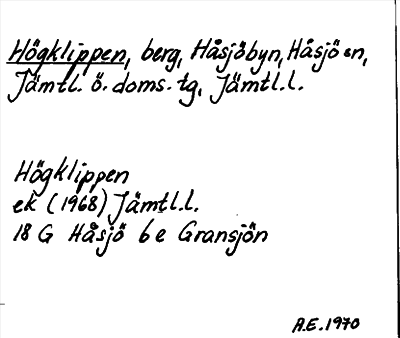 Högklippen, berg, Håsjöbyn, Håsjö sn,
Jämtl. ö. doms. tg, Jämtl.l.
Högklippen
ek (1968) Jämtl.l.
18 G Håsjö 6 e Gransjön
A.E. 1970